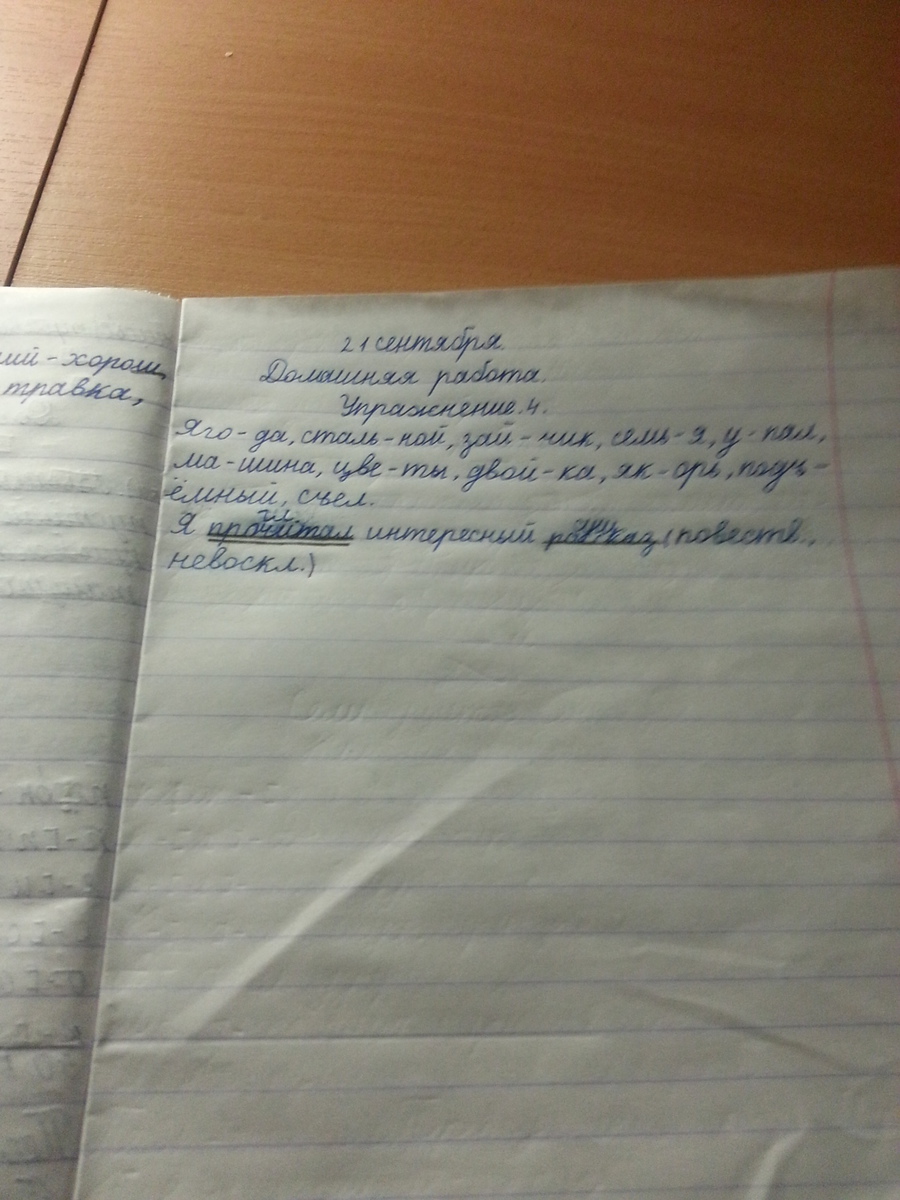 ший-хорош
травка,
21 сентября.
Домашняя работа.
Упражнение.4.
Яго-да, сталь-ной, зай-чик, семь-я, у-пал,
ма-шина, цве-ты, двой-ка, як-орь, подъ-
ёмный, съел.
Я прочитал интересный рассказ (повеств.,
невоскл.)